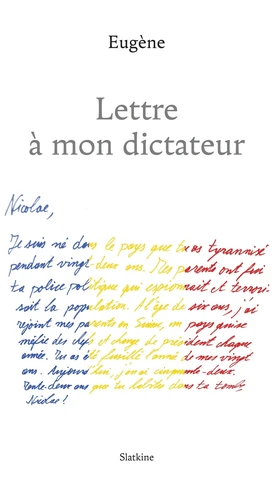 Eugène
Lettre
à mon dictateur
Nicolae,
Je suis né dans le pays que tu as tyrannisé
pendant vingt-deux ans. Mes parents ont fui
ta police politique qui espionnait et terrori-
sait la population. A l'âge de six ans, j'ai
rejoint mes parents en Suisse, un pays qui se
méfie des chefs et change de président chaque
année. Tu as été fusillé l'année de mes vingt
ans. Aujourd'hui, j'en ai cinquante-deux.
Trente-deux ans que tu habites dans ta tombe,
Nicolae !
Slatkine